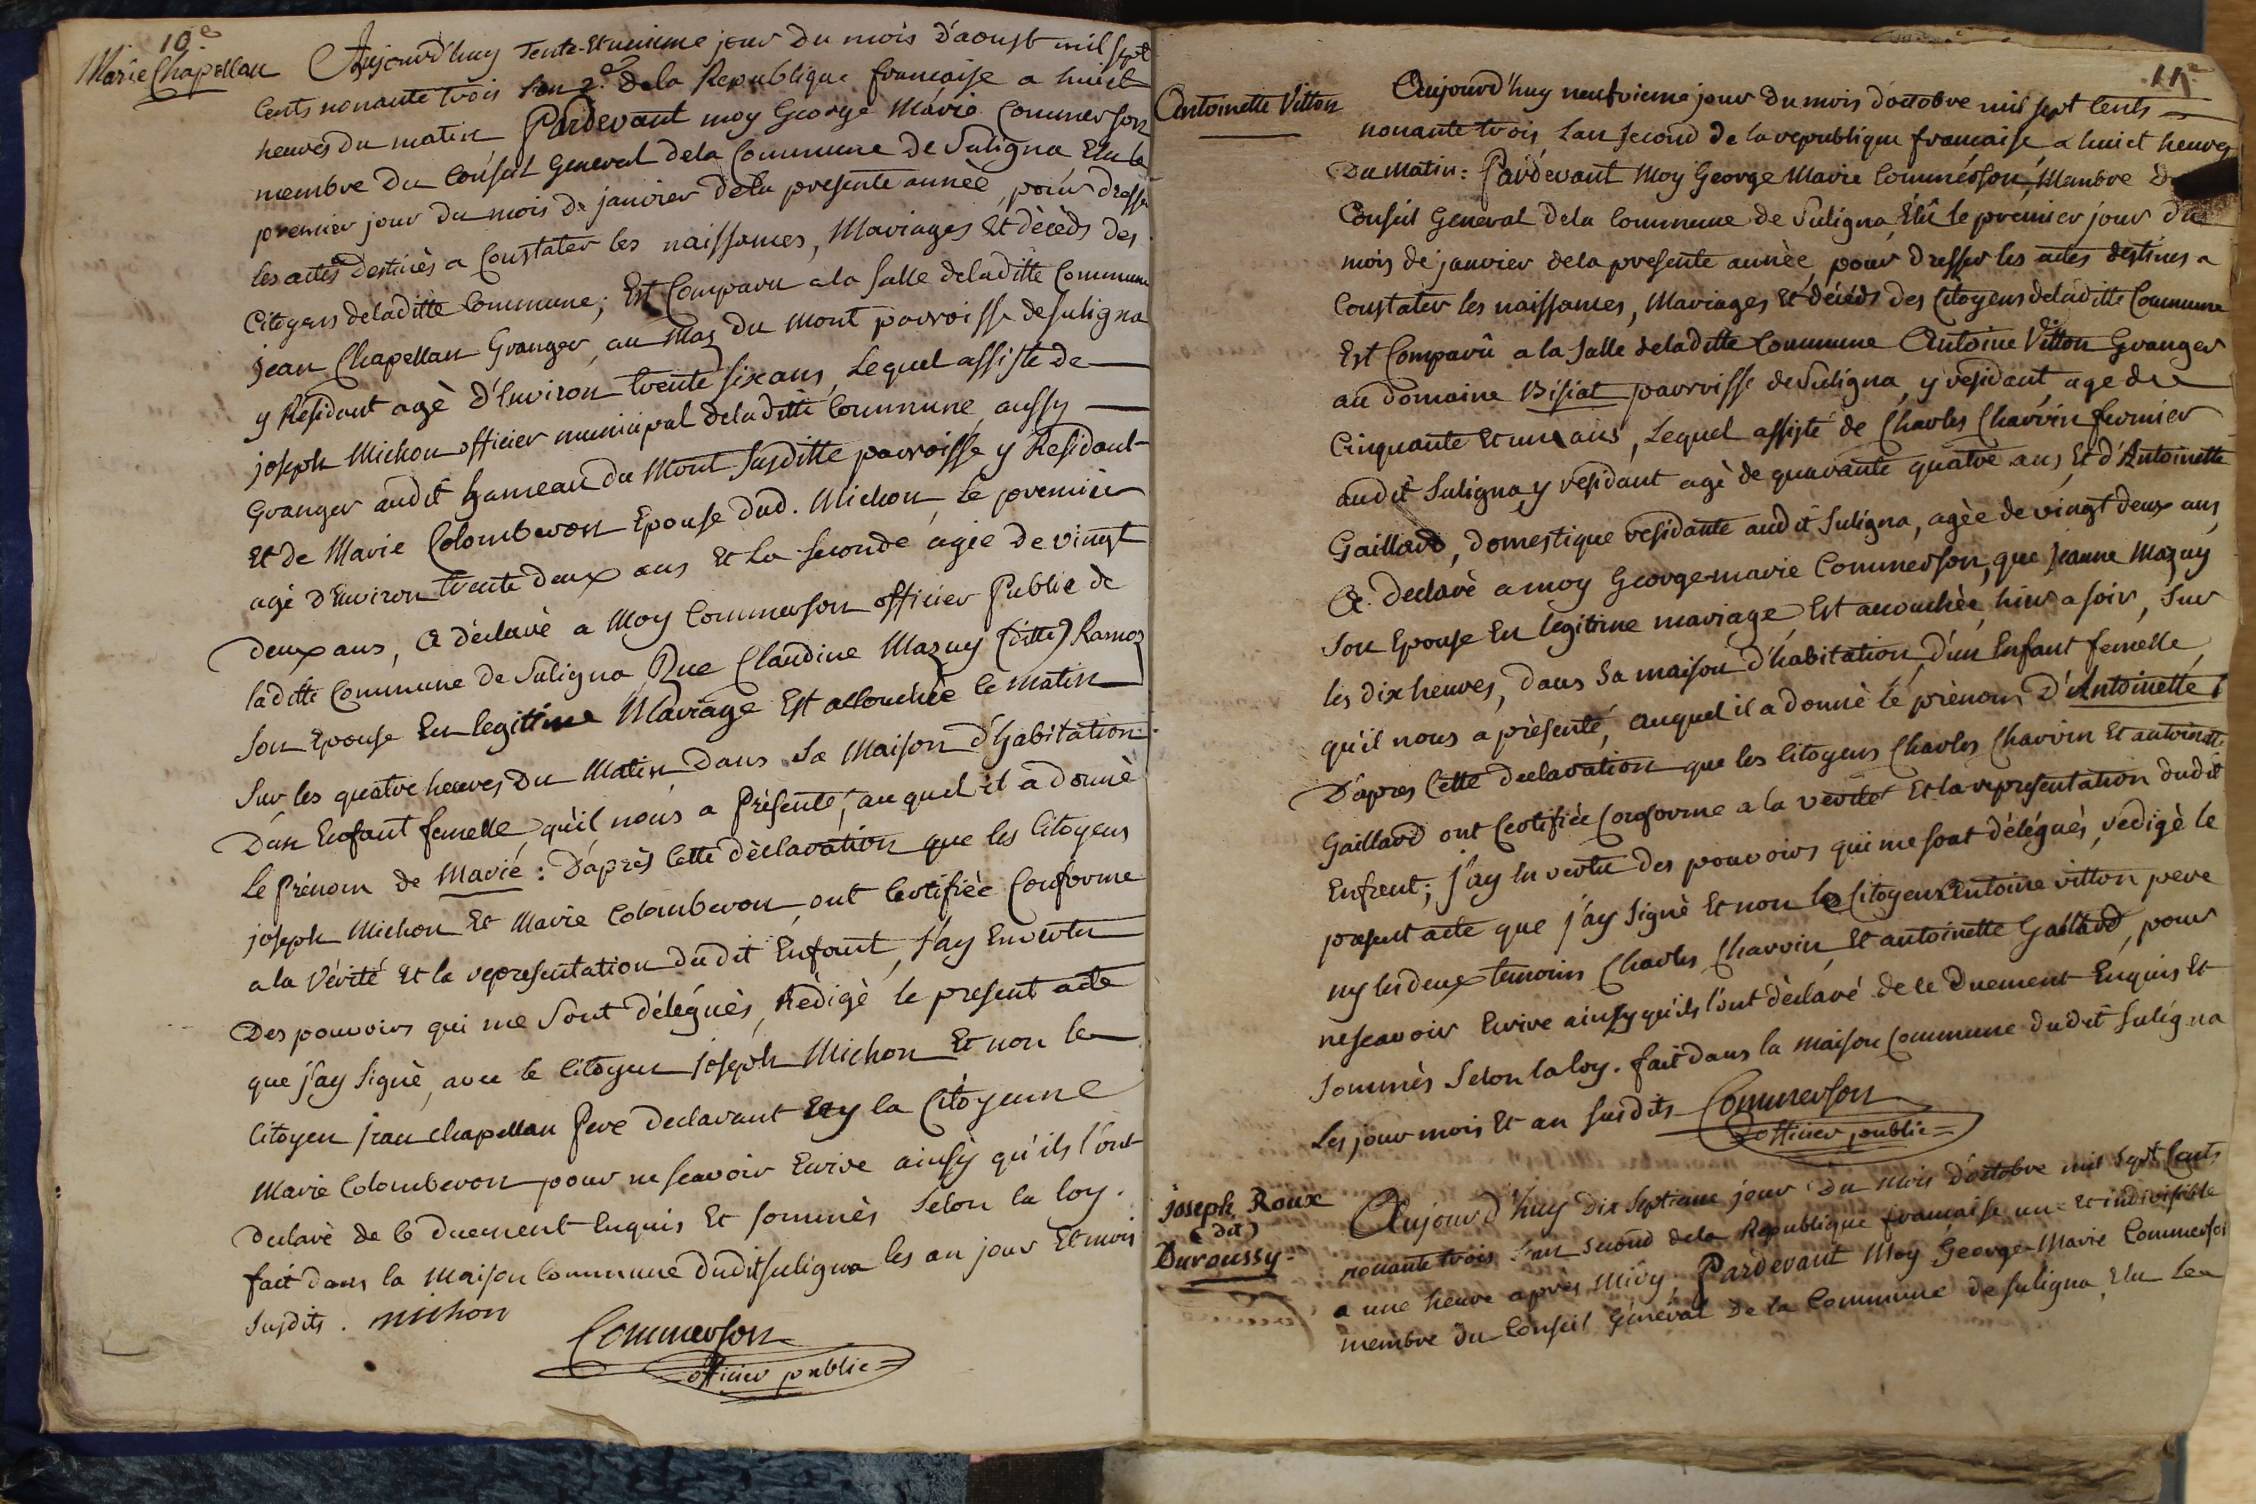 10e
Marie Chapellan
Aujourd'huy Tente-Et unieme jour du mois d'aoust mil sept
Cents nonante trois l'an 2e. de la Republique francaise a huict
heures du matin, Pardevant moy George Marie Commerson
membre du Conseil General dela Commune de Suligna Elu le
premier jour du mois de janvier dela presente année, pour dresser
les actes destinès a Constater les naissances, Mariages Et dècèds des
Citoyens deladitte Commune; Est Comparu a la Salle deladitte Commune
jean Chapellan Granger, au Mas du Mont parroisse de suligna
y Residant agè d'Environ trente six ans, Lequel assiste de
joseph Michon officier municipal deladitte Commune, aussy
Granger audit hameau du Mont susditte parroisse y Residant
Et de Marie Colomberon Epouse dud. Michon, Le premier
agè d'Environ trente deux ans Et La seconde agée de vingt
deux ans, a dèclarè a Moy Commerson officier Public de
laditte Commune de Suligna, Que Claudine Mazuy (ditte) Ramoz
son Epouse En legittime Mariage Est accouchée ce matin
Sur les quatre heures Du Matin Dans Sa Maison d'habitation
D'un Enfant femelle, qu'il nous a Présenté, auquel il a donnè
Le Prénom de Marie: D'après Cette dèclaration que les Citoyens
joseph Michon Et Marie Colomberon, ont Certifièe Conforme
a la Vérité Et la representation dudit Enfant, j'ay En vertu
Des pouvoirs qui me Sont Délégués, Rèdigè le present acte
que j'ay Signè, avec le Citoyen joseph Michon Et non le
Citoyen jean chapellan Pere declarant ny la Citoyenne
Marie Colomberon pour ne scavoir Ecrire ainsy qu'ils l'ont
Declarè de ce Duement Enquis Et sommès Selon la loy.
fait dans la Maison Commune dudit suligna les an jour Et mois
susdits. michon
Commerson
officier public
11e
Antoinette Vitton
Aujourd'huy neufvieme jour du mois d'octobre mil sept Cents
nonante trois, L'an second de la republique francaise a huict heures
Du Matin: Pardevant Moy George Marie Commerson, Membre
Conseil General dela Commune de Suligna, Elû le premier jour du
mois de janvier dela presente annèe, pour dresser les actes destinès a
Constater les naissances, Mariages Et dècèds des Citoyens deladitte Commune
Est Comparû a la Salle deladitte Commune Antoine Vitton Granger
au domaine Bisiat parroisse de Suligna, y residant, agè de
Cinquante Et un ans, Lequel assisté de Charles Charvin fermier
audit Suligna, y residant agè de quarante quatre ans, Et d'Antoinette
Gaillard, domestique residante audit Suligna, agèe de vingt deux ans,
A declarè a moy George-marie Commerson, que Jeanne Mazuy
Son Epouse En legitime mariage, Est accouchèe, hier a soir, Sur
les dix heures, dans Sa maison d'habitation, d'un Enfant femelle,
qu'il nous a prèsenté, auquel il a donnè le prènom D'Antoinette
D'apres Cette declaration que les Citoyens Charles Charvin Et antoinette
Gaillard ont Certifièe Conforme a la verite Et la representation dudit
Enfant; j'ay En vertu des pouvoirs qui me sont délégués, redigè le
present acte que j'ay Signè Et non le Citoyen Antoine vitton pere
ny les deux temoins Charles Charvin, Et antoinette Gaillard, pour
ne scavoir Ecrire ainsy qu'ils l'ont dèclaré de ce Duement Enquis Et
Sommès Selon la loy. fait dans la maison Commune dudit Suligna
Les jour mois Et an susdits Commerson
officier public
joseph Roux
(dit)
Duroussy
Aujourd'huy Dix septieme jour Du mois d'octobre mil Sept Cents
nonante trois L'an Second dela Republique francaise une Et indivisible
a une heure après Midy, Pardevant Moy George-Marie Commerson
membre du Conseil Général De la Commune de Suligna, Elu Le